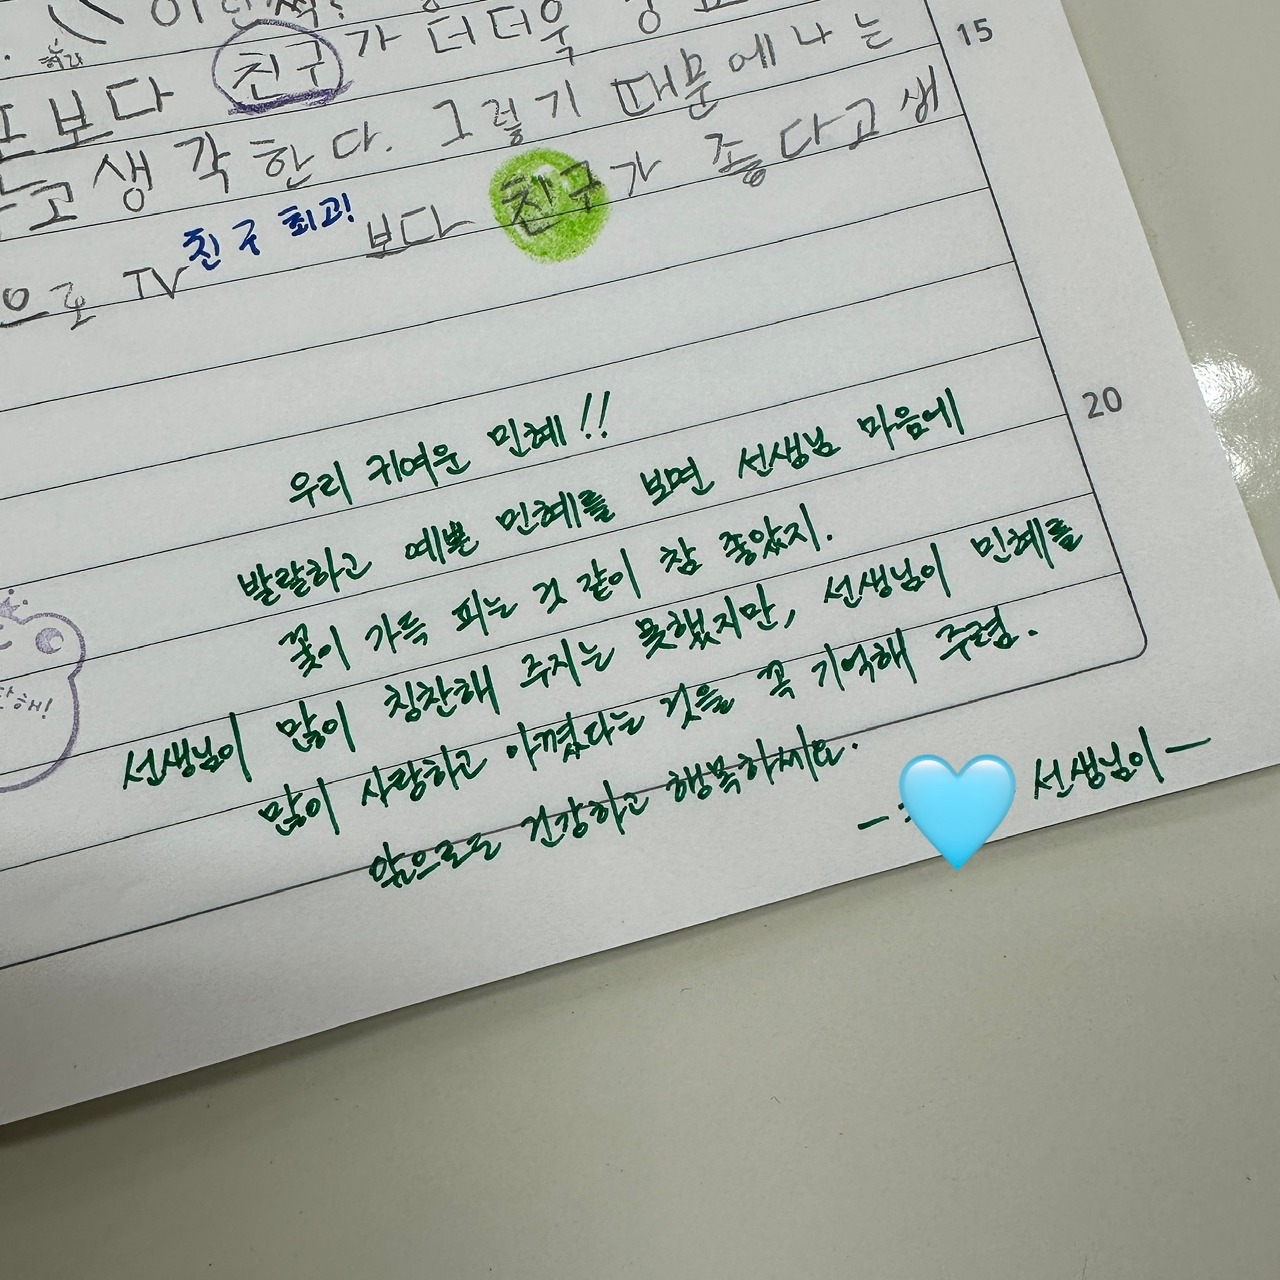 보다 친구가 더더욱
15
고 생각한다. 그렇기 때문에 나는
친구 최고!
으로 TV보다 친구가 좋다고 생
20
우리 귀여운 민혜!!
발랄하고 예쁜 민혜를 보면 선생님 마음에
꽃이 가득 피는 것 같이 참 좋았지.
선생님이 많이 칭찬해 주지는 못했지만, 선생님이 민혜를
많이 사랑하고 아꼈다는 것을 꼭 기억해 주렴.
앞으로도 건강하고 행복하세요.
- 선생님이 -